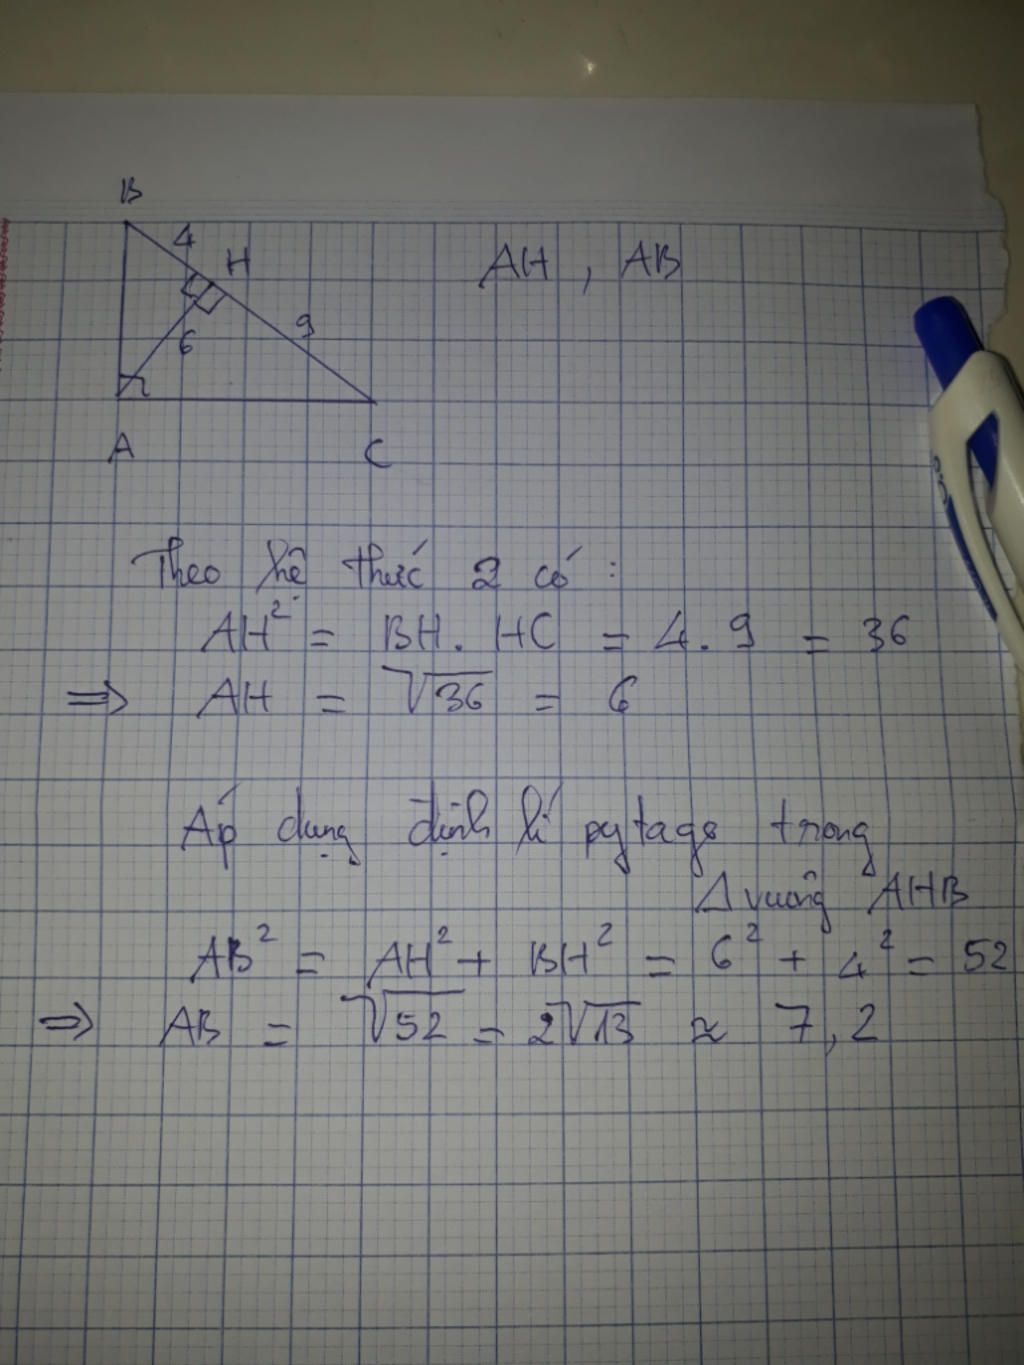 B
4
H
AH , AB
6
9
A
C
Theo hệ thức 2 có :
AH² = BH . HC = 4 . 9 = 36
⇒ AH = √36 = 6
Áp dụng định lí pytago trong
Δ vuông AHB
AB² = AH² + BH² = 6² + 4² = 52
⇒ AB = √52 = 2√13 ≈ 7,2